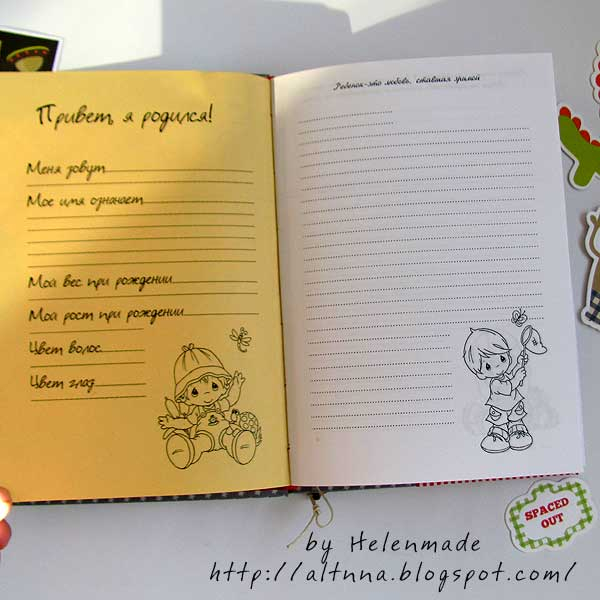 Привет, я родился!
Меня зовут
Мое имя означает
Мой вес при рождении
Мой рост при рождении
Цвет волос
Цвет глаз
Ребенок-это любовь, ставшая зримой
SPACED
OUT
by Helenmade
http://altnna.blogspot.com/